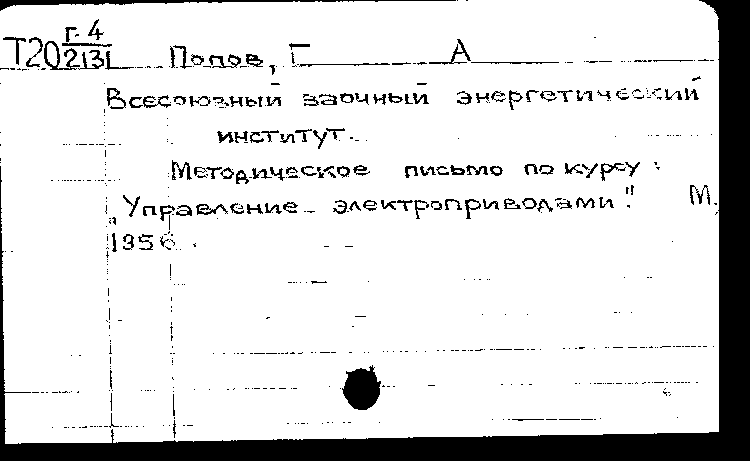 Г-4
Т20 2131 Попов, Г А
Всесоюзный заочный энергетический
институт.
Методическое письмо по курсу:
„Управление электроприводами". М,
1956.